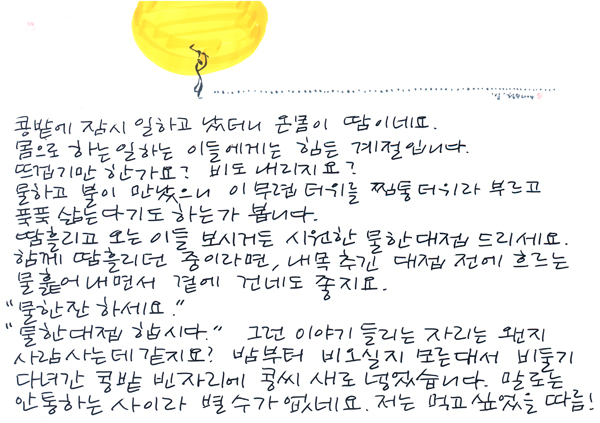 콩밭에 잠시 일하고 났더니 온몸이 땀이네요.
몸으로 하는일하는 이들에게는 힘든 계절입니다.
뜨겁기만 한가요? 비도 내리지요?
물하고 불이 만났으니 이 무렵 더위를 찜통더위라 부르고
푹푹 삶는다기도 하는가 봅니다.
땀흘리고 오는 이들 보시거든 시원한 물한대접 드리세요.
함께 땀흘리던 중이라면, 내목 축긴 대접 전에 흐르는
물훑어내면서 곁에 건네도 좋지요.
"물한잔 하세요."
"물한대접 합시다." 그런 이야기 들리는 자리는 왠지
사람사는데 같지요? 밤부터 비오실지 모른대서 비둘기
다녀간 콩밭 빈자리에 콩씨 새로 넣었습니다. 말로는
안통하는 사이라 별 수가 없네요. 저는 먹고 싶었을 따름!